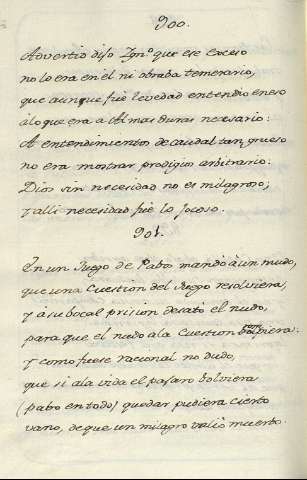 900.
Advertid dijo Ign.º que ese exceso
no lo era en él ni obraba temerario,
que aunque fue levedad entendio en eso
à lo que era a Almas duras necesario:
A entendimientos de caudal tan grueso
no era mostrar prodigios arbitrario:
Dios sin necesidad no es milagroso;
y alli necesidad fuè lo jocoso.
901.
En un Juego de Pabos mandò à un mudo,
que una Cuestion del Juego resolviera,
y à su bocal prision desatò el nudo,
para que el nudo a la Cuestion rompiera:
y como fuese racional no dudo,
que si a la vida el pajaro bolviera
(pabo en todo) quedar pudiera cierto
vano, de que un milagro valiò muerto.